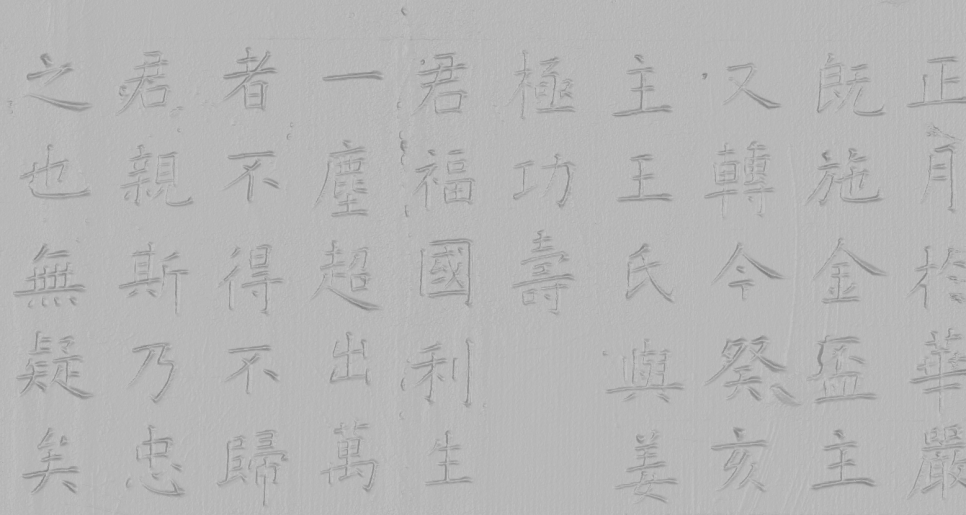 正月於華嚴
既施金盃主
又轉今癸亥
主王氏與姜
極功壽
君福國利生
一塵超出萬
者不得不歸
君親斯乃忠
之也無疑矣